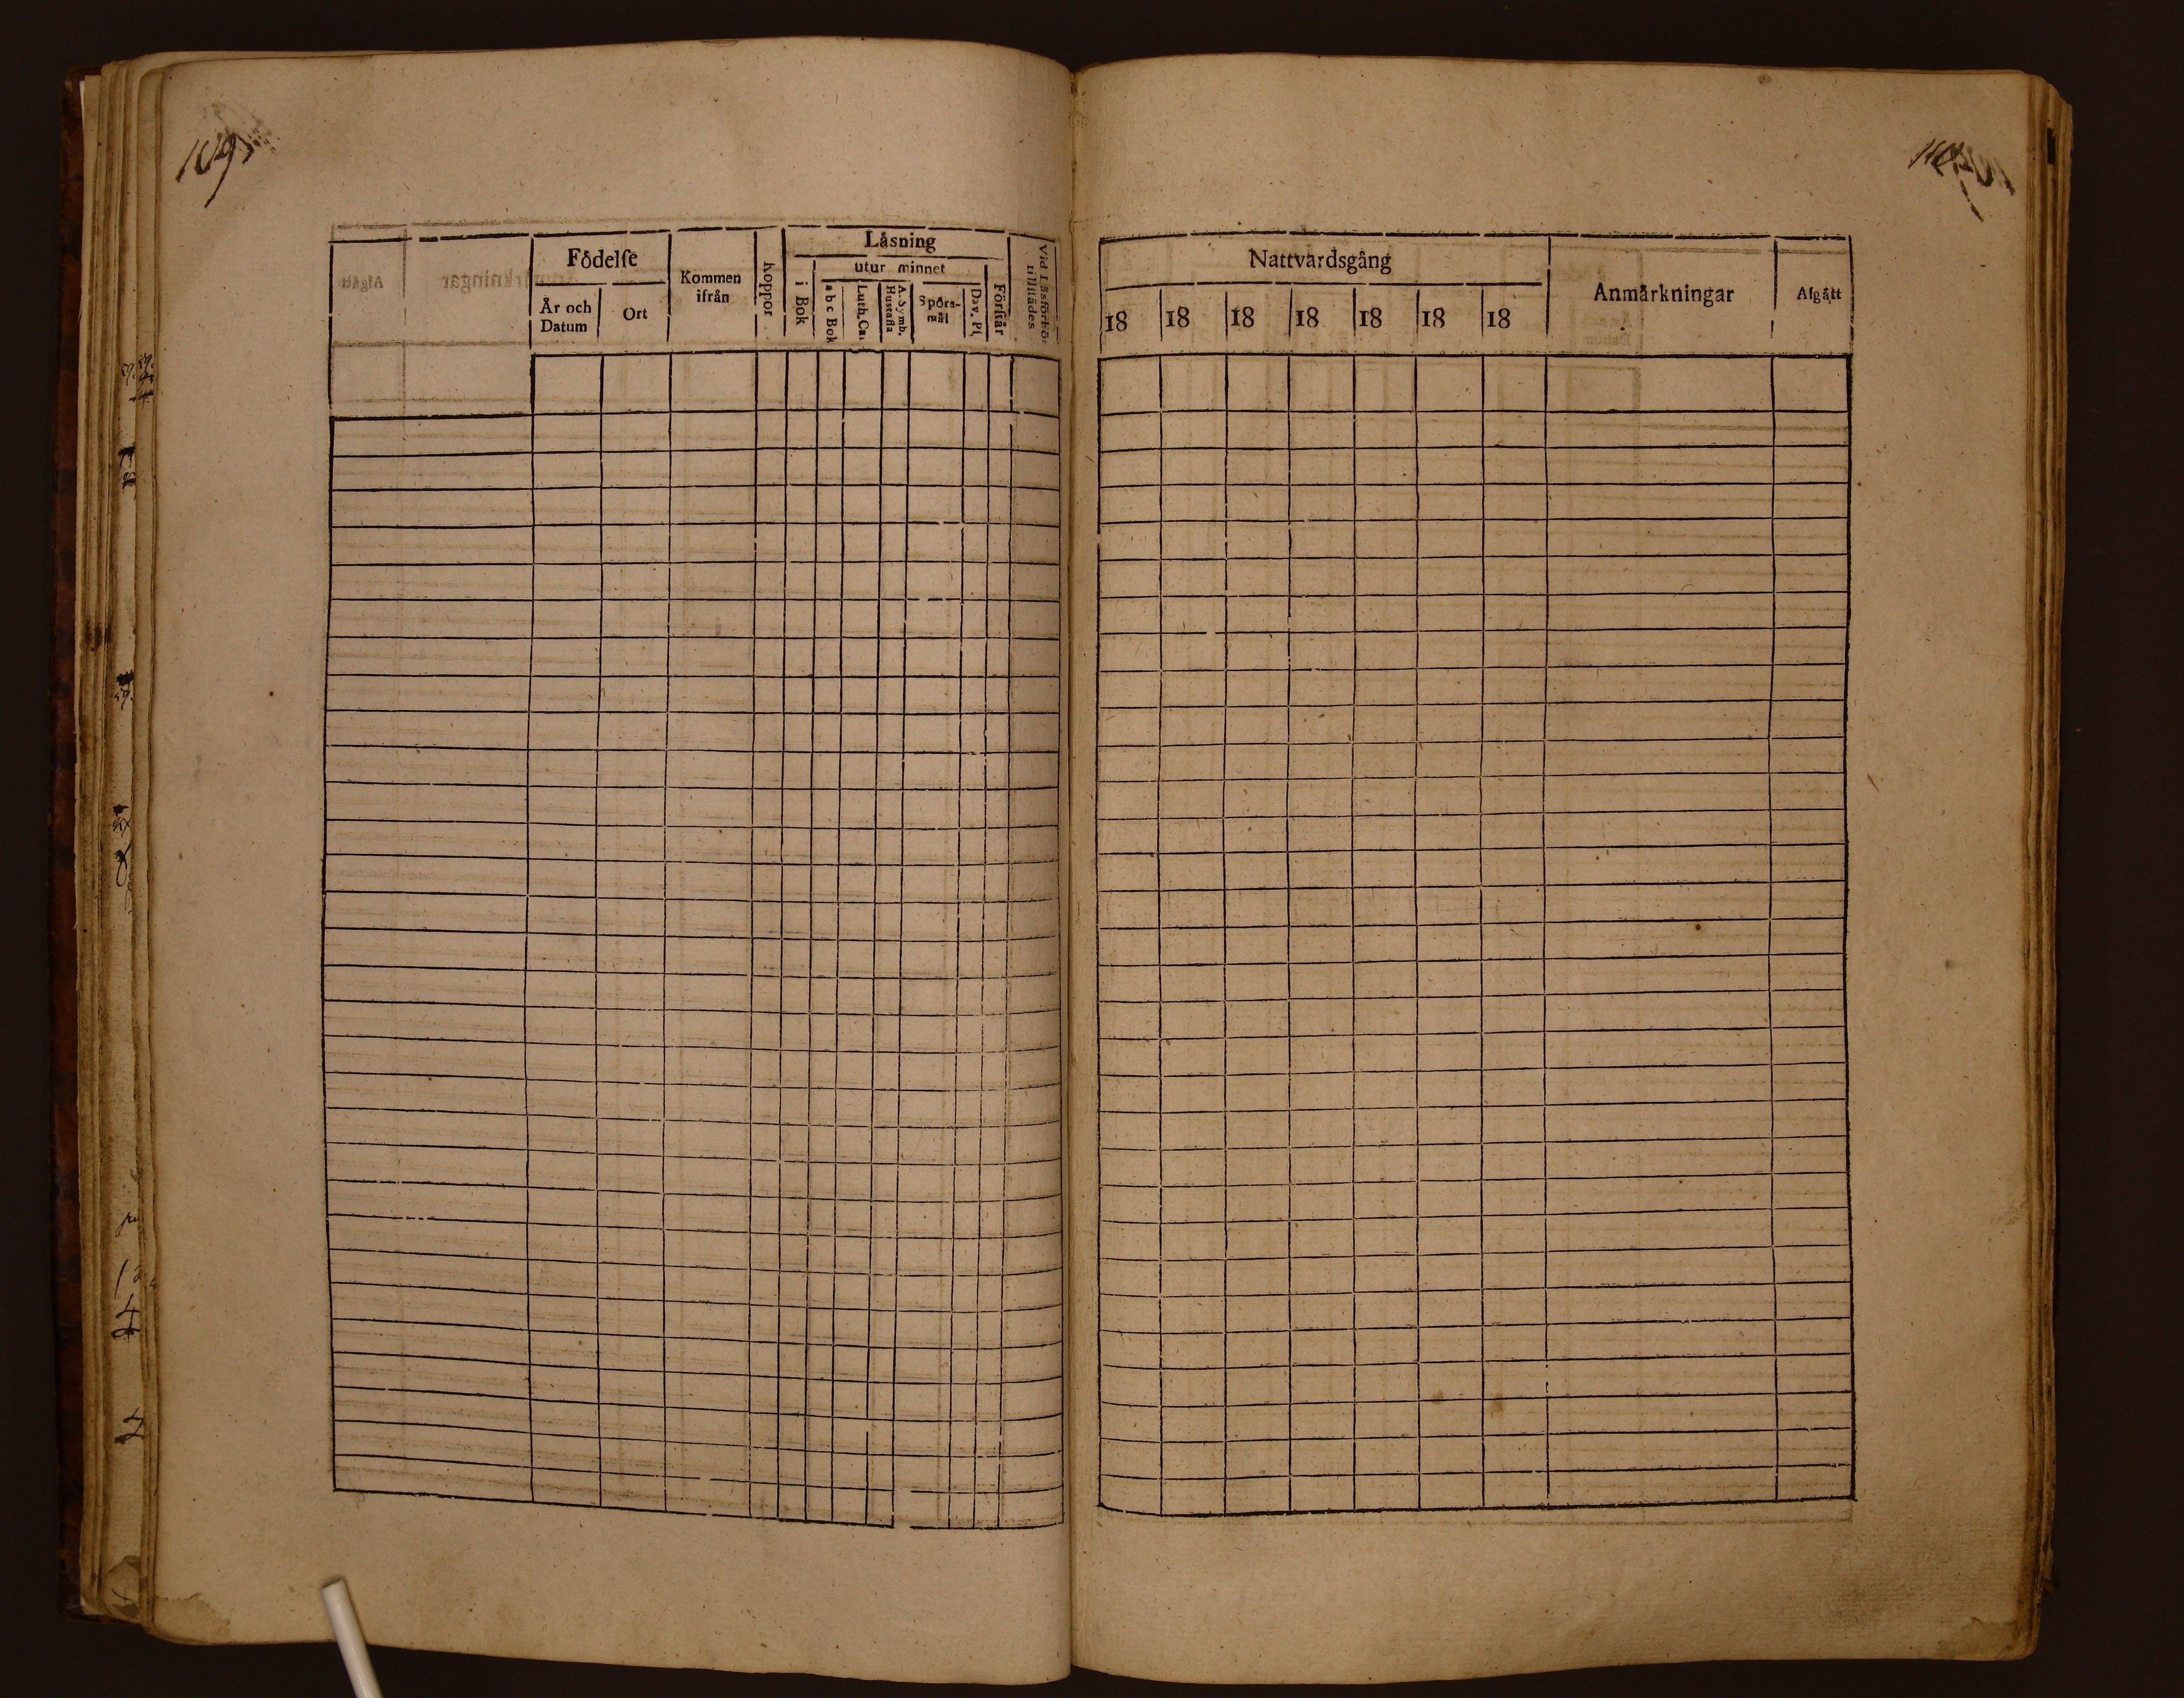 109
Födelſe
År och Datum
Ort
Kommen ifrån
Koppor
Läsning
i Bok
utur minnet
a b c Bok
Luth. Cat
A. Symb. Hustafla
Spörs-mål
Dav. Pſ.
Förſtår
Vid Läsförhör tillſtädes
Nattvardsgång
18 18 18 18 18 18 18
Anmärkningar
Afgått